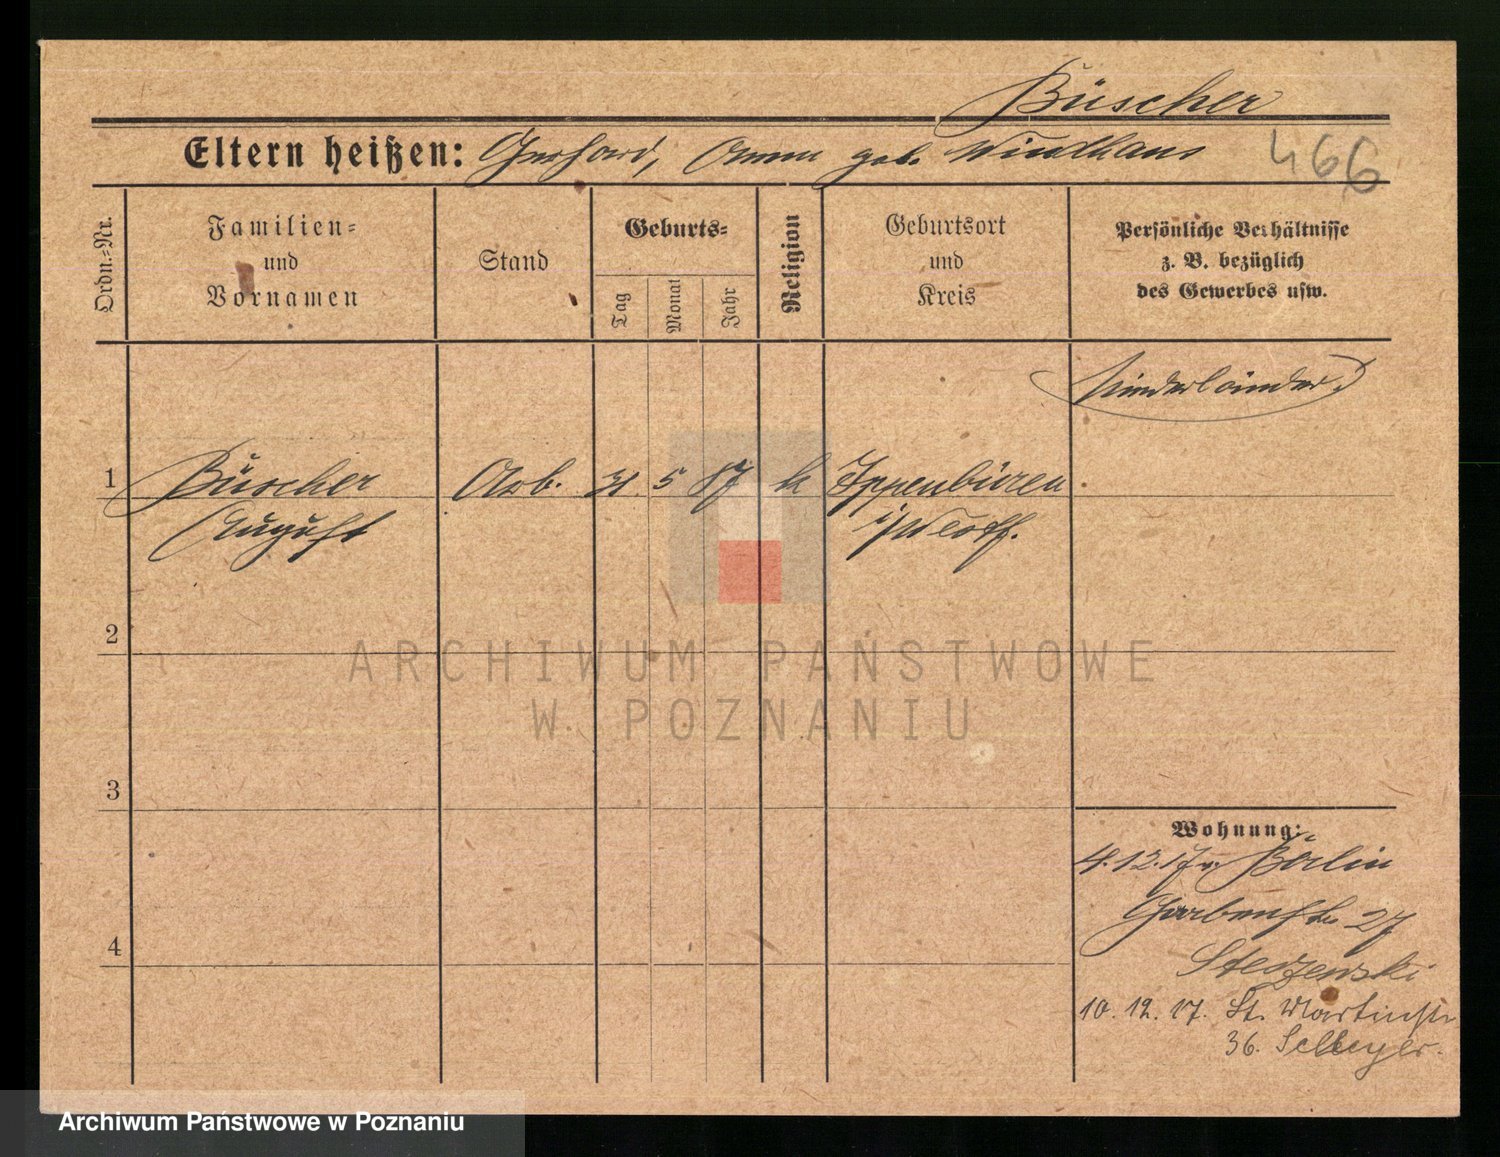 Büscher
Eltern heißen: Gerhard, Anna geb. Windhaus
466
Ordn.-Nr.
Familien-
und
Vornamen
Stand
Geburts-
Tag
Monat
Jahr
Religion
Geburtsort
und
Kreis
Persönliche Verhältnisse
z. B. bezüglich
des Gewerbes usw.
Niederländer
1
Büscher Arb. 31. 5 87 k Ippenbüren
August i/Westf.
2
3
4
Wohnung:
4.12.17 v. Berlin
27
10. 12. 17. St. Martinstr
36.
ARCHIWUM PAŃSTWOWE
W POZNANIU
Archiwum Państwowe w Poznaniu